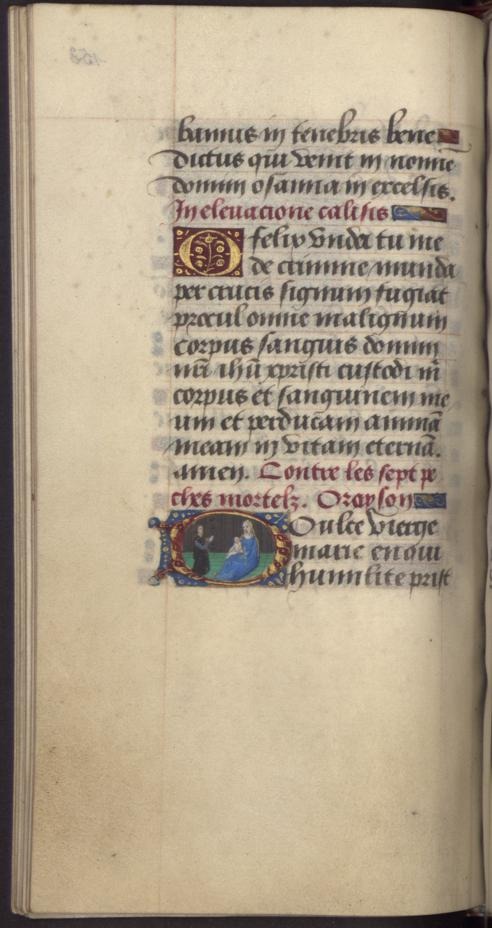 bamus in tenebris bene
dictus qui venit in nomine
domini osanna in excelsis.
In elevacione calisis
O felix vnda tu me
de crimine munda
per crucis signum fugiat
procul omne malignum
corpus sanguis domini
nr̄i ihū xpristi custodi m̄
corpus et sanguinem me
um et perducam animā
meam in vitam eternā.
amen. Contre les sept pe
ches mortelz. Orayson
Doulce vierge
marie en qui
humilite prist